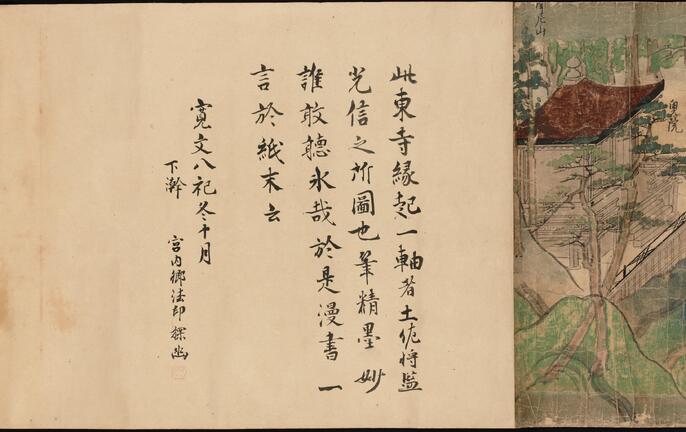 此東寺縁起一軸者土佐将監
光信之所圖也筆精墨妙
誰敢聽氷哉於是漫書一
言於紙末云
寛文八祀冬十月
下澣
宮内卿法印探幽